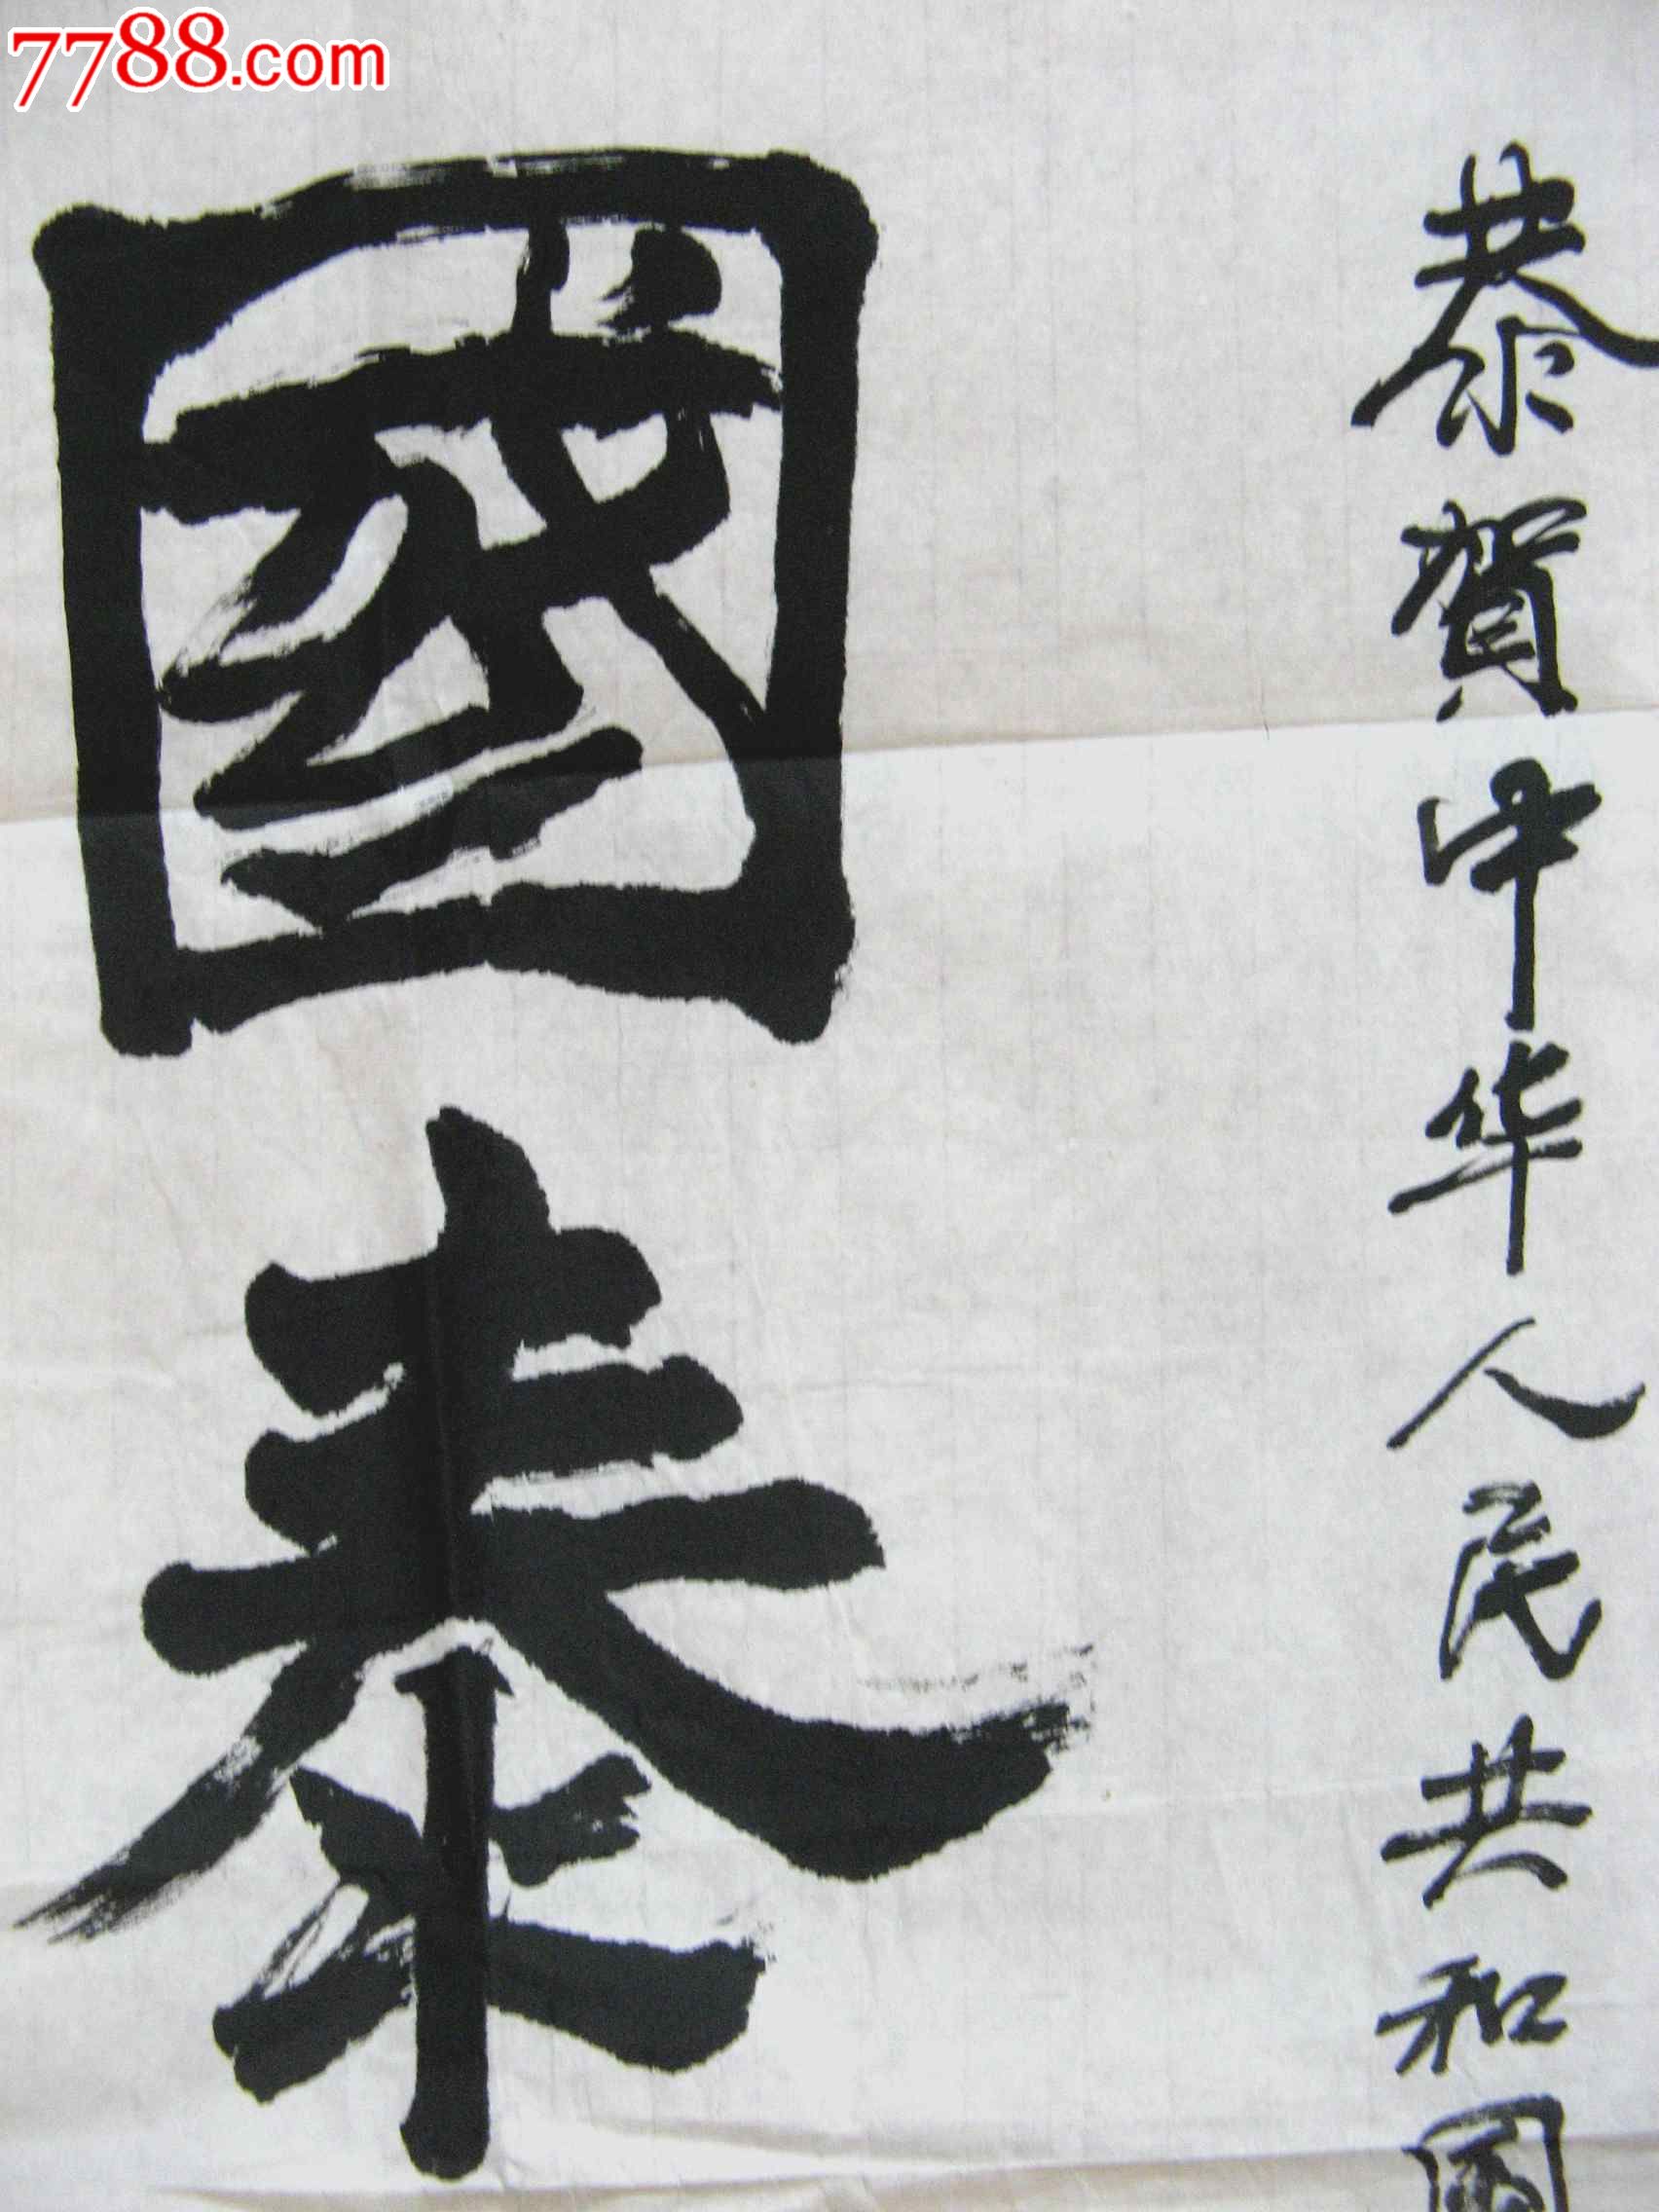 7788.com
恭賀中华人民共和國
國泰